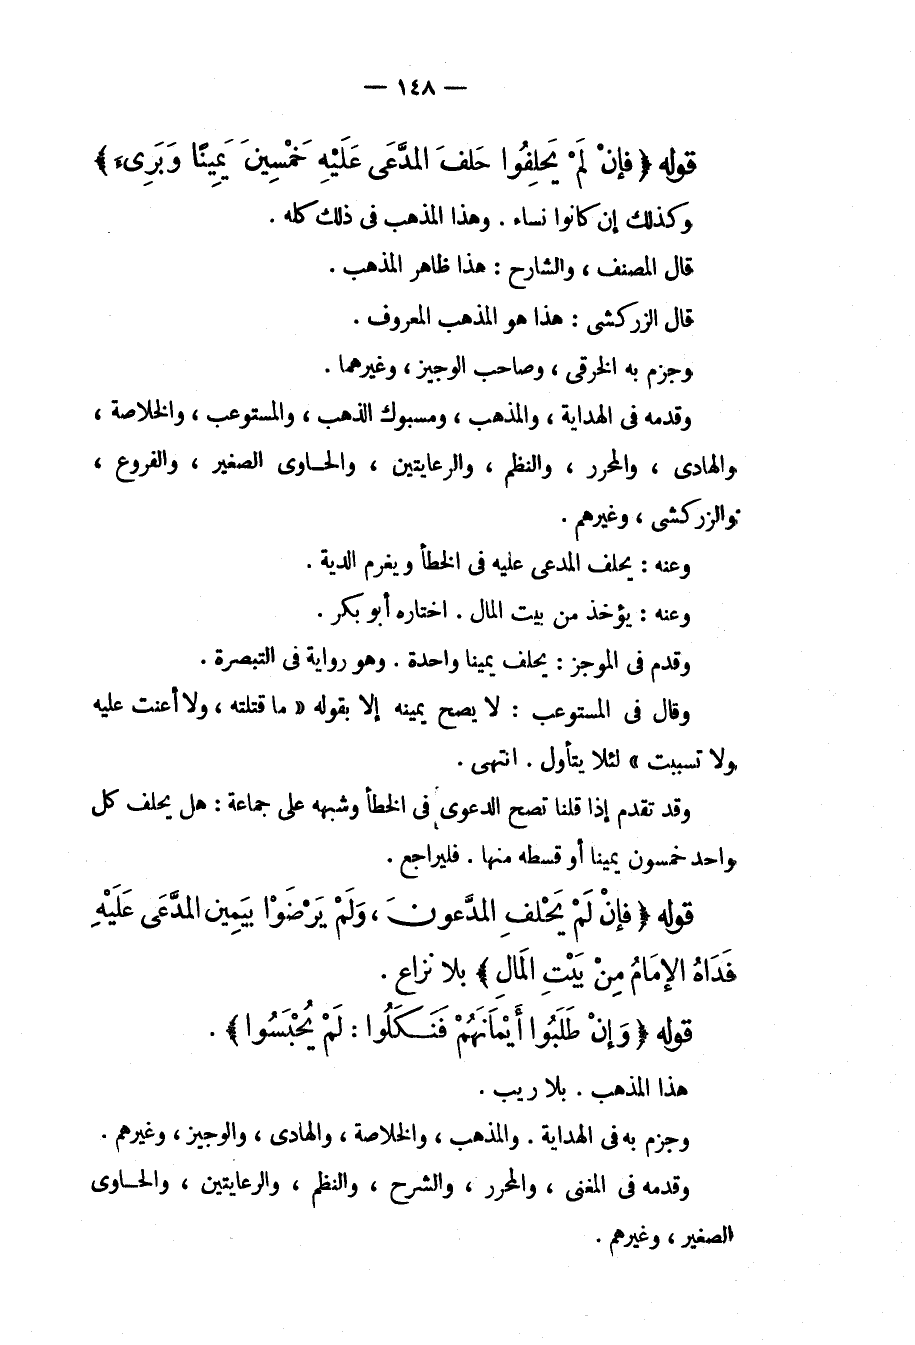 — ١٤٨ —
قوله ﴿ فإنْ لَمْ يَحلِفُوا حَلفَ المدَّعَى عَلَيْهِ خَمْسِينَ يَمِينًا وَبَرِىءَ ﴾
وكذلك إن كانوا نساء . وهذا المذهب فى ذلك كله .
قال المصنف ، والشارح : هذا ظاهر المذهب .
قال الزركشى : هذا هو المذهب المعروف .
وجزم به الخرقى ، وصاحب الوجيز ، وغيرهما .
وقدمه فى الهداية ، والمذهب ، ومسبوك الذهب ، والمستوعب ، والخلاصة ،
والهادى ، والمحرر ، والنظم ، والرعايتين ، والحاوى الصغير ، والفروع ،
والزركشى ، وغيرهم .
وعنه : يحلف المدعى عليه فى الخطأ ويغرم الدية .
وعنه : يؤخذ من بيت المال . اختاره أبو بكر .
وقدم فى الموجز : يحلف يمينا واحدة . وهو رواية فى التبصرة .
وقال فى المستوعب : لا يصح يمينه إلا بقوله « ما قتلته ، ولا أعنت عليه
ولا تسببت » لئلا يتأول . انتهى .
وقد تقدم إذا قلنا تصح الدعوى فى الخطأ وشبهه على جماعة : هل يحلف كل
واحد خمسون يمينا أو قسطه منها . فليراجع .
قوله ﴿ فإنْ لَمْ يَحْلفِ المدَّعون ، وَلَمْ يَرْضَوْا بيَمِين المدَّعَى عَلَيْهِ
فَدَاهُ الإمَامُ مِنْ بَيْتِ المَالِ ﴾ بلا نزاع .
قوله ﴿ وَإنْ طَلَبُوا أَيْمَانَهُمْ فَنَكَلُوا : لَمْ يُحْبَسُوا ﴾ .
هذا المذهب . بلا ريب .
وجزم به فى الهداية . والمذهب ، والخلاصة ، والهادى ، والوجيز ، وغيرهم .
وقدمه فى المغنى ، والمحرر ، والشرح ، والنظم ، والرعايتين ، والحاوى
الصغير ، وغيرهم .